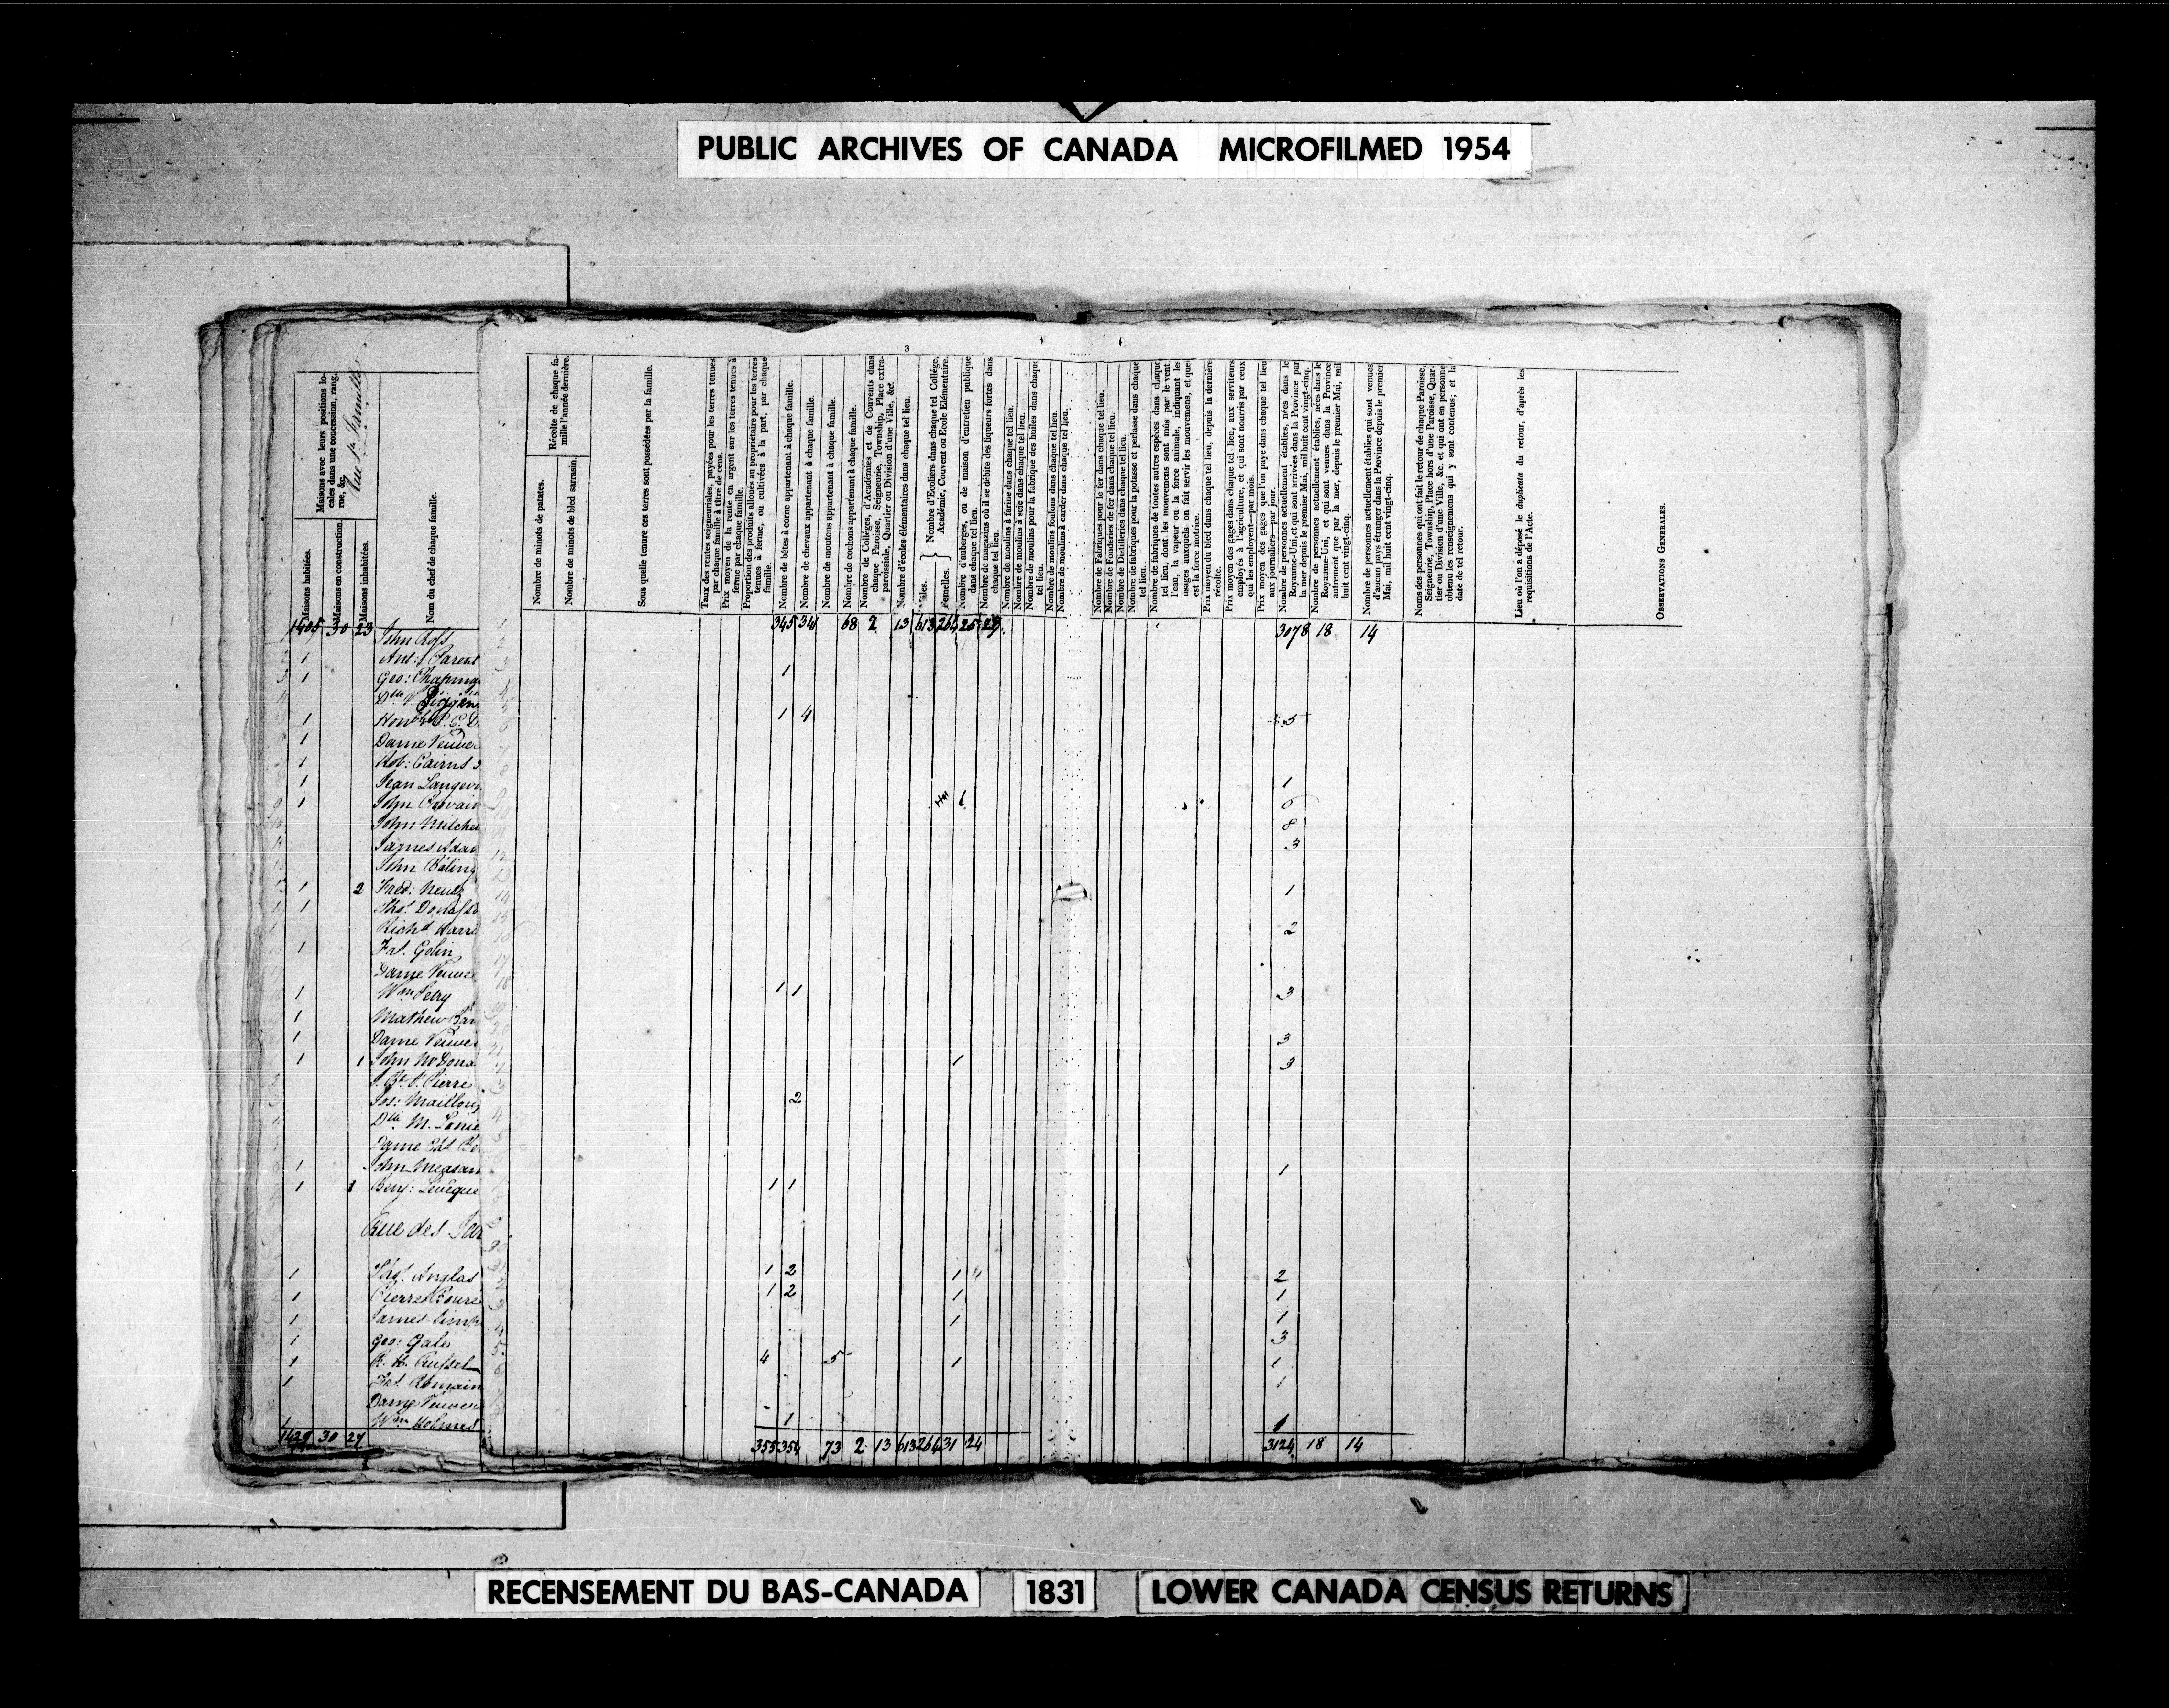 PUBLIC ARCHIVES OF CANADA MICROFILMED 1954
3
Maisons avec leurs positions locales dans une concession, rang, rue, &c.
Maisons habitées.
Maisons en construction.
Maisons inhabitées.
Nom du chef de chaque famille.
Récolte de chaque famille l'année dernière.
Nombre de minots de patates.
Nombre de minots de bled sarrasin.
Sous quelle tenure ces terres sont possédées par la famille.
Taux des rentes seigneuriales, payées pour les terres tenues par chaque famille à titre de cens.
Prix moyen de la rente en argent sur les terres tenues à ferme par chaque famille.
Proportion des produits alloués au propriétaire pour les terres tenues à ferme, ou cultivées à la part, par chaque famille.
Nombre de bêtes à corne appartenant à chaque famille.
Nombre de chevaux appartenant à chaque famille.
Nombre de moutons appartenant à chaque famille.
Nombre de cochons appartenant à chaque famille.
Nombre de Colléges, d'Académies et de Couvents dans chaque Paroisse, Seigneurie, Township, Place extra-paroissiale, Quartier ou Division d'une Ville, &c.
Nombre d'écoles élémentaires dans chaque tel lieu.
Nombre d'Ecoliers dans chaque tel Collége, Académie, Couvent ou Ecole Elémentaire.
Mâles.
Femelles.
Nombre d'auberges, ou de maison d'entretien publique dans chaque tel lieu.
Nombre de magazins où il se débite des liqueurs fortes dans chaque tel lieu.
Nombre de moulins à farine dans chaque tel lieu.
Nombre de moulins à scie dans chaque tel lieu.
Nombre de moulins pour la fabrique des huiles dans chaque tel lieu.
Nombre de moulins foulons dans chaque tel lieu.
Nombre de moulins à carder dans chaque tel lieu.
Nombre de Fabriques pour le fer dans chaque tel lieu.
Nombre de Fonderies de fer dans chaque tel lieu.
Nombre de Distilleries dans chaque tel lieu.
Nombre de fabriques pour la potasse et perlasse dans chaque tel lieu.
Nombre de fabriques de toutes autres espèces dans chaque tel lieu, dont les mouvemens sont mûs par le vent, l'eau, la vapeur ou la force animale, indiquant les usages auxquels on fait servir les mouvemens, et que est la force motrice.
Prix moyen du bled dans chaque tel lieu, depuis la dernière récolte.
Prix moyen des gages dans chaque tel lieu, aux serviteurs employés à l'agriculture, et qui sont nourris par ceux qui les employent—par mois.
Prix moyen des gages que l'on paye dans chaque tel lieu aux journaliers—par jour.
Nombre de personnes actuellement établies, nées dans le Royaume-Uni, et qui sont arrivées dans la Province par la mer depuis le premier Mai, mil huit cent vingt-cinq.
Nombre de personnes actuellement établies, nées dans le Royaume-Uni, et qui sont venues dans la Province autrement que par la mer, depuis le premier Mai, mil huit cent vingt-cinq.
Nombre de personnes actuellement établies qui sont venues d'aucun pays étranger dans la Province depuis le premier Mai, mil huit cent vingt-cinq.
Noms des personnes qui ont fait le retour de chaque Paroisse, Seigneurie, Township, Place hors d'une Paroisse, Quartier ou Division d'une Ville, &c. et qui ont en personne obtenu les renseignemens qui y sont contenus; et la date de tel retour.
Lieu où l'on a déposé le duplicata du retour, d'après les requisitions de l'Acte.
OBSERVATIONS GENERALES.
1405 30 23 John Ross 345 341 68 2 13 613 264 25 3078 18 14
1 Ant: Parent
1 Geo: Chapman 1
Dlle V.
1 Honble P. E. D 1 4 5
1 Dame Veuve
1 Rob: Cairns
1 Jean Langevi 1
1 John 1 6
John Mitchel 8
James Adam 3
John
1 2 Fred: 1
1 Thos. Donals
Richd. Harri 2
1 Frs. Gobin
Dame Veuve
1 Wm Petry 1 1 3
1 Mathew
1 Dame Veuve 3
1 1 John McDona 1 3
J. Bte. St. Pierre
Jos: Maillou 2
Dlle M.
Dame
1 John Measam 1
1 1 Benj: Levêque 1 1
Rue des
1 Thos. Anglas 1 2 1 2
1 Pierre 1 2 1 1
1 James Simp 1 1
1 Geo: Gale 3
1 R. H. Russel 4 5 1 1
1 Frs. Romain 1
Dame Veuve
1 Wm Holmes 1 1
1429 30 27 355 354 73 2 13 613 264 31 24 3124 18 14
RECENSEMENT DU BAS-CANADA 1831 LOWER CANADA CENSUS RETURNS